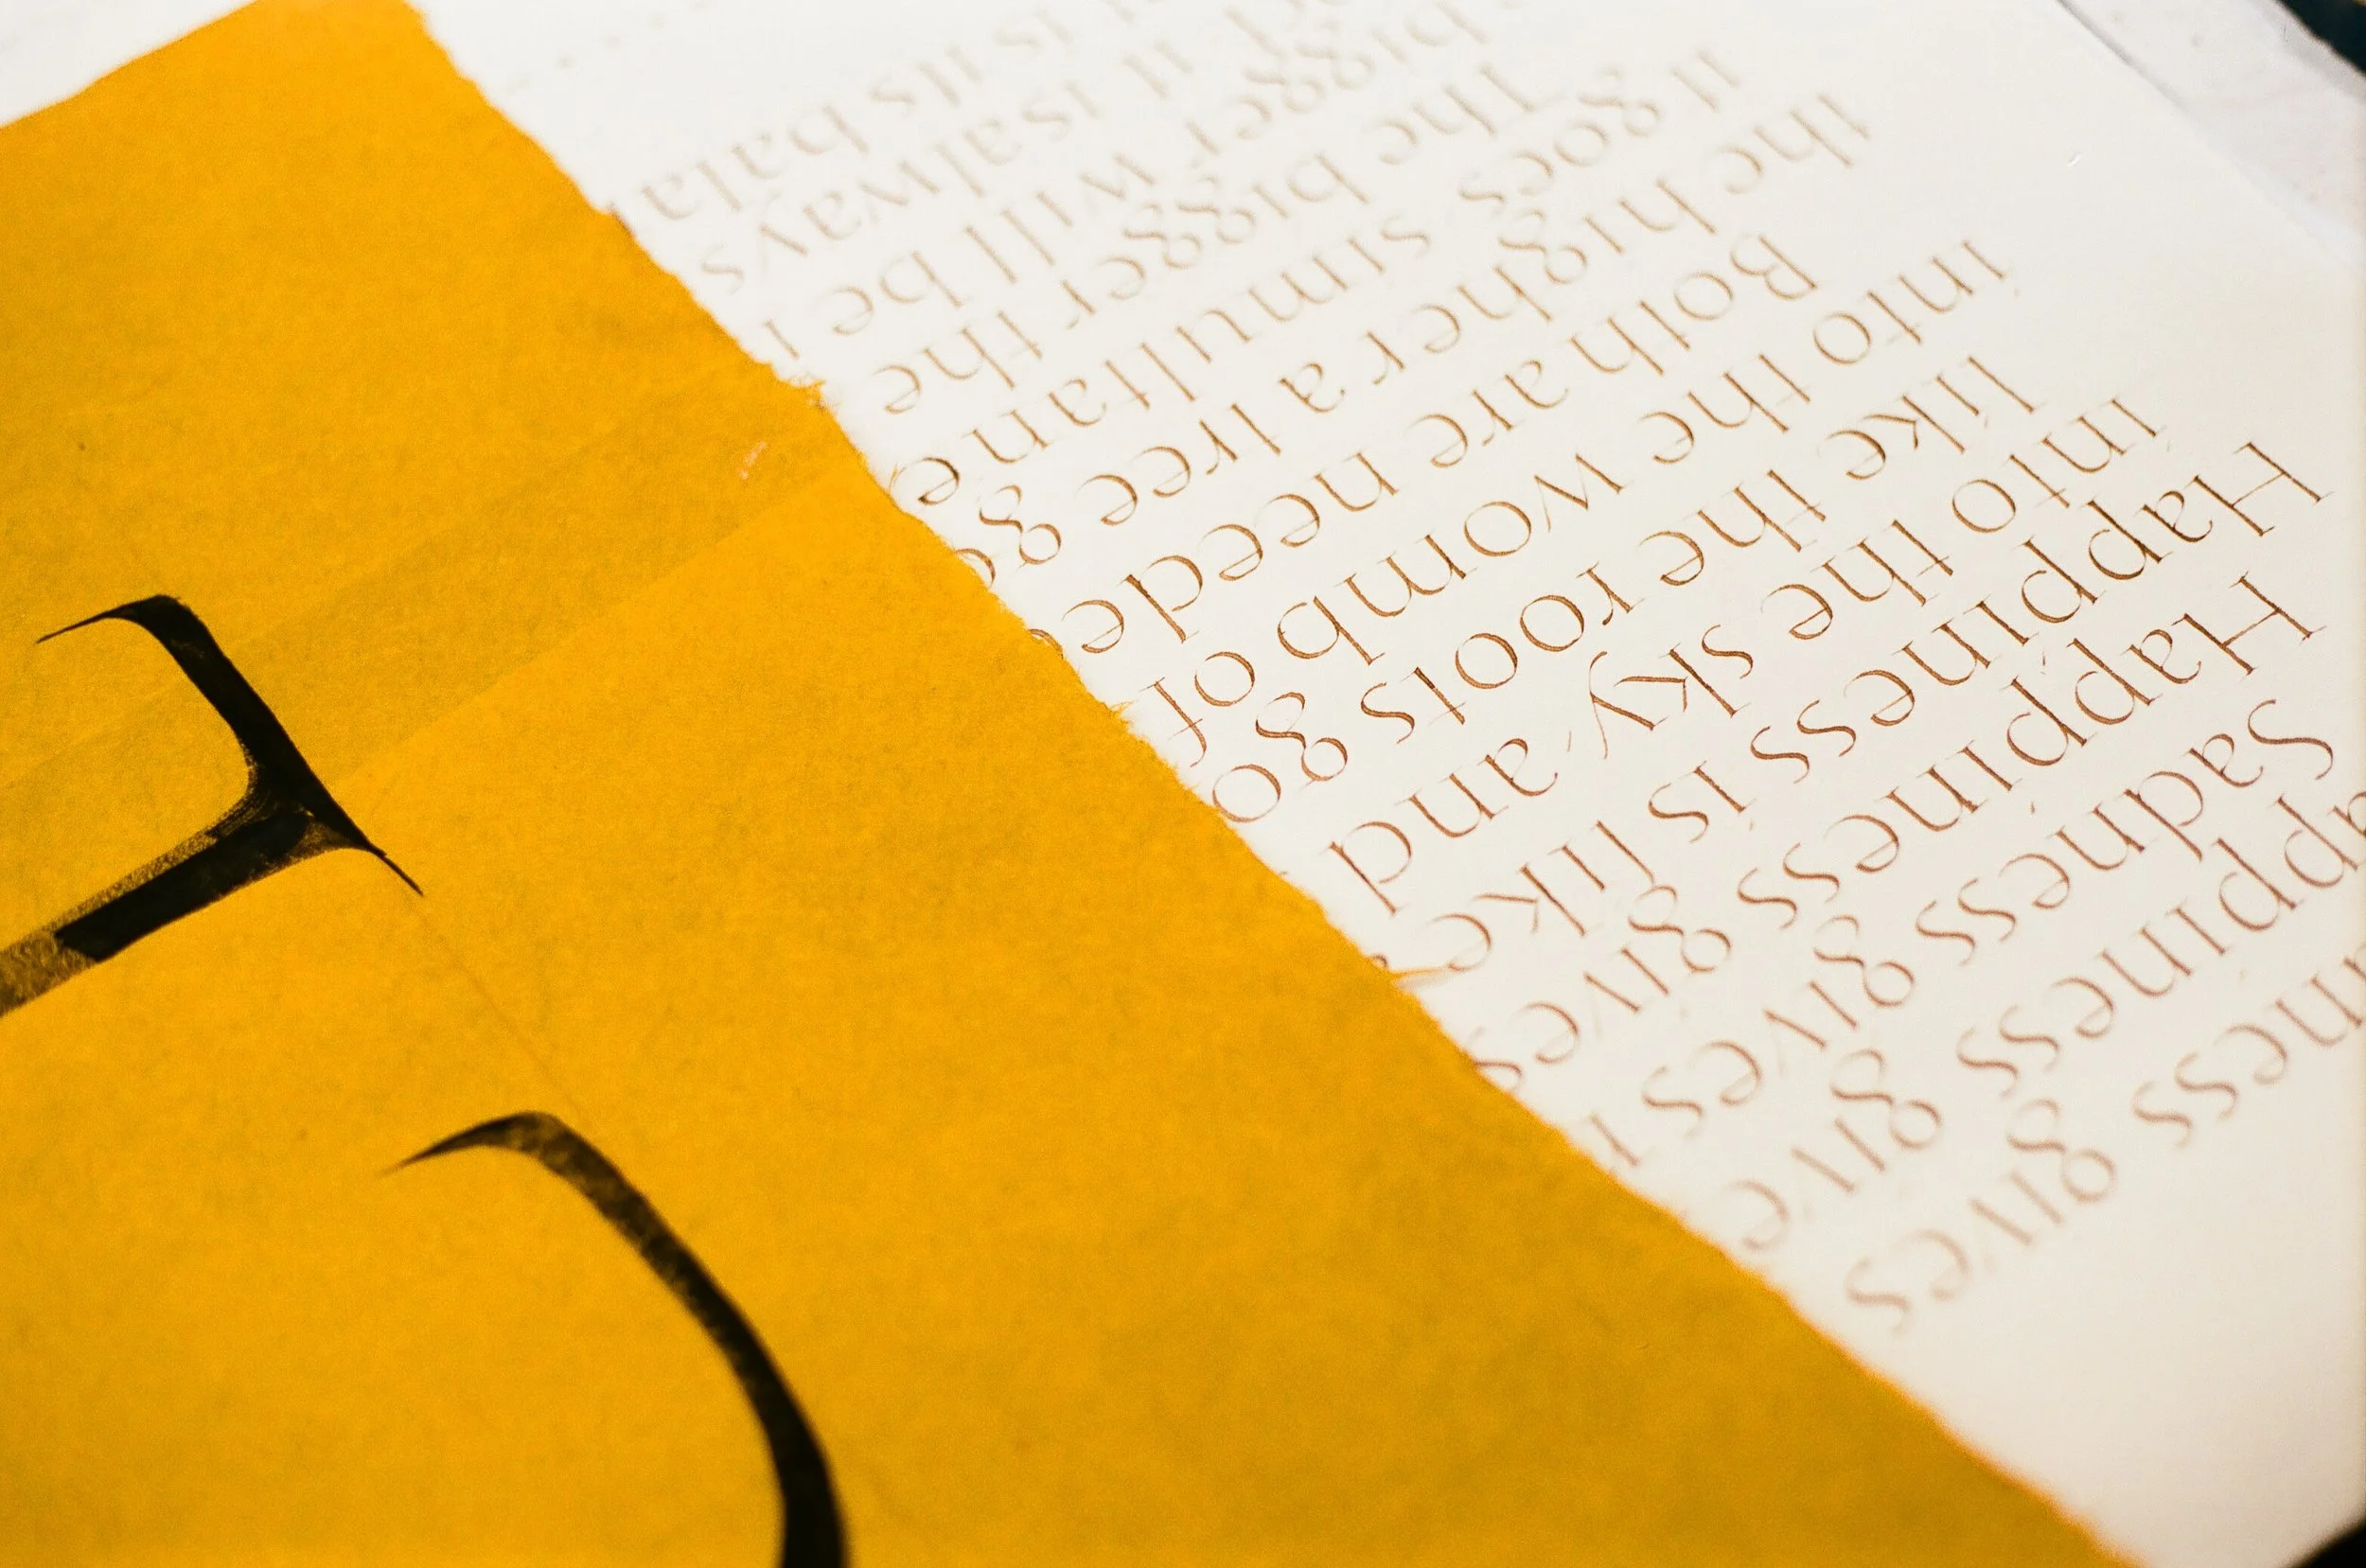 ness gives
appiness give
Sadness gives
Happiness gives
Happiness is like
into the sky and
like the roots go
into the womb of
Both are neede
the higher a tree go
It goes simultane
The bigger the
bigger will be
it is always
is its bala